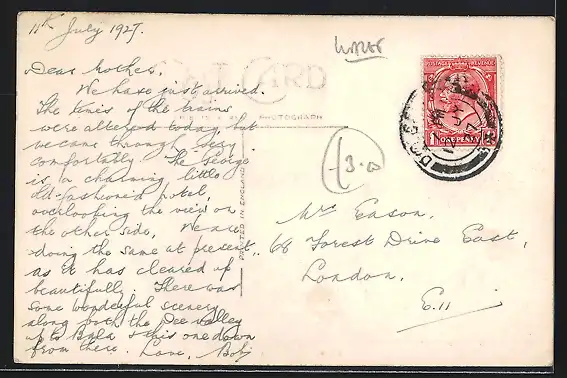 11th July 1927.
Dear Mother,
We have just arrived.
The times of the trains
were altered today, but
we came through very
comfortably. The George
is a charming little
old-fashioned hotel,
overlooking the view on
the other side. We are
doing the same at present,
as it has cleared up
beautifully. There was
some wonderful scenery
along both the Dee valley
up to Bala & this one down
from there. Love, Bob
POST CARD
PHOTOGRAPH
PRINTED IN ENGLAND
3.0
POSTAGE REVENUE
ONE PENNY
Mrs Eason.
68 Forest Drive East,
London.
E.11